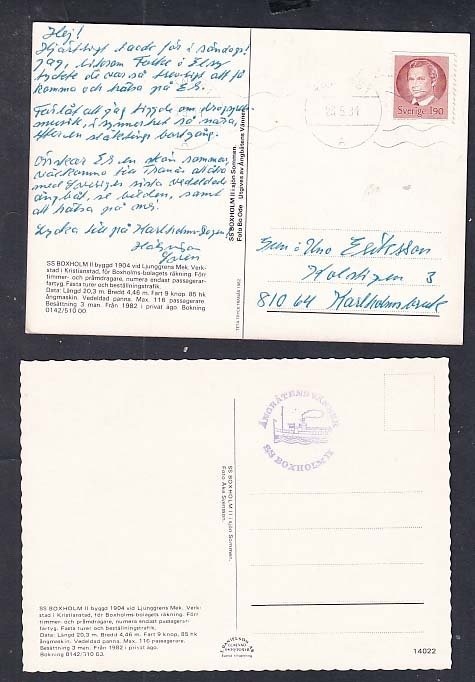 Hej!
Hjärtligt tack för i söndags!
Jag, liksom Folke o Elsy
tyckte de var så trevligt att få
komma och hälsa på E.R.
Förlåt att jag
musik, i synnerhet så nära,
efter en släktings bortgång.
Önskar E.R. en skön sommar,
välkomna till Tranås åka
med Sveriges sista vedeldade
ångbåt, se bilden, samt
att hälsa på mej.
Lycka till på Karlholms-dagen!
Hälsningar
SS BOXHOLM II byggd 1904 vid Ljunggrens Mek. Verk-
stad i Kristianstad, för Boxholms-bolagets räkning. Förr
timmer- och pråmdragare, numera endast passagerar-
fartyg. Fasta turer och beställningstrafik.
Data: Längd 20,3 m. Bredd 4,46 m. Fart 9 knop. 85 hk
ångmaskin. Vedeldad panna. Max. 116 passagerare.
Besättning 3 man. Från 1982 i privat ägo. Bokning
0142/510 00
SS BOXHOLM II i sjön Sommen.
Foto Bo Ode Utgives av Ångbåtens Vänner
Sverige 190
A
Gun o Uno Eriksson
3
810 64 Karlholmsbruk
ÅNGBÅTENS VÄNNER
SS BOXHOLM II
SS BOXHOLM II i sjön Sommen.
Foto Åke Svensson.
SS BOXHOLM II byggd 1904 vid Ljunggrens Mek. Verk-
stad i Kristianstad, för Boxholms-bolagets räkning. Förr
timmer- och pråmdragare, numera endast passagerar-
fartyg. Fasta turer och beställningstrafik.
Data: Längd 20,3 m. Bredd 4,46 m. Fart 9 knop, 85 hk
ångmaskin. Vedeldad panna. Max. 116 passagerare.
Besättning 3 man. Från 1982 i privat ägo.
Bokning 0142/510 63.
14022